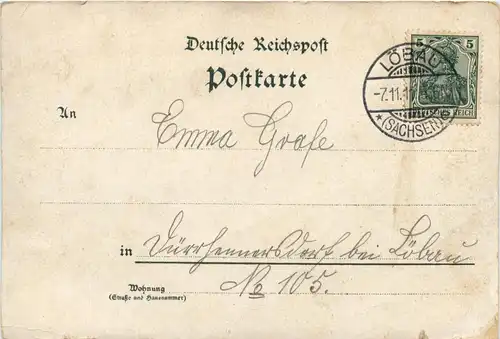 Deutsche Reichspost
Postkarte
5 5
LÖBAU
-7.11.1
* (SACHSEN)
REICH
An
Emma Grafe
in Dürrhennersdorf bei Löbau
No 105.
Wohnung
(Straße und Hausnummer)